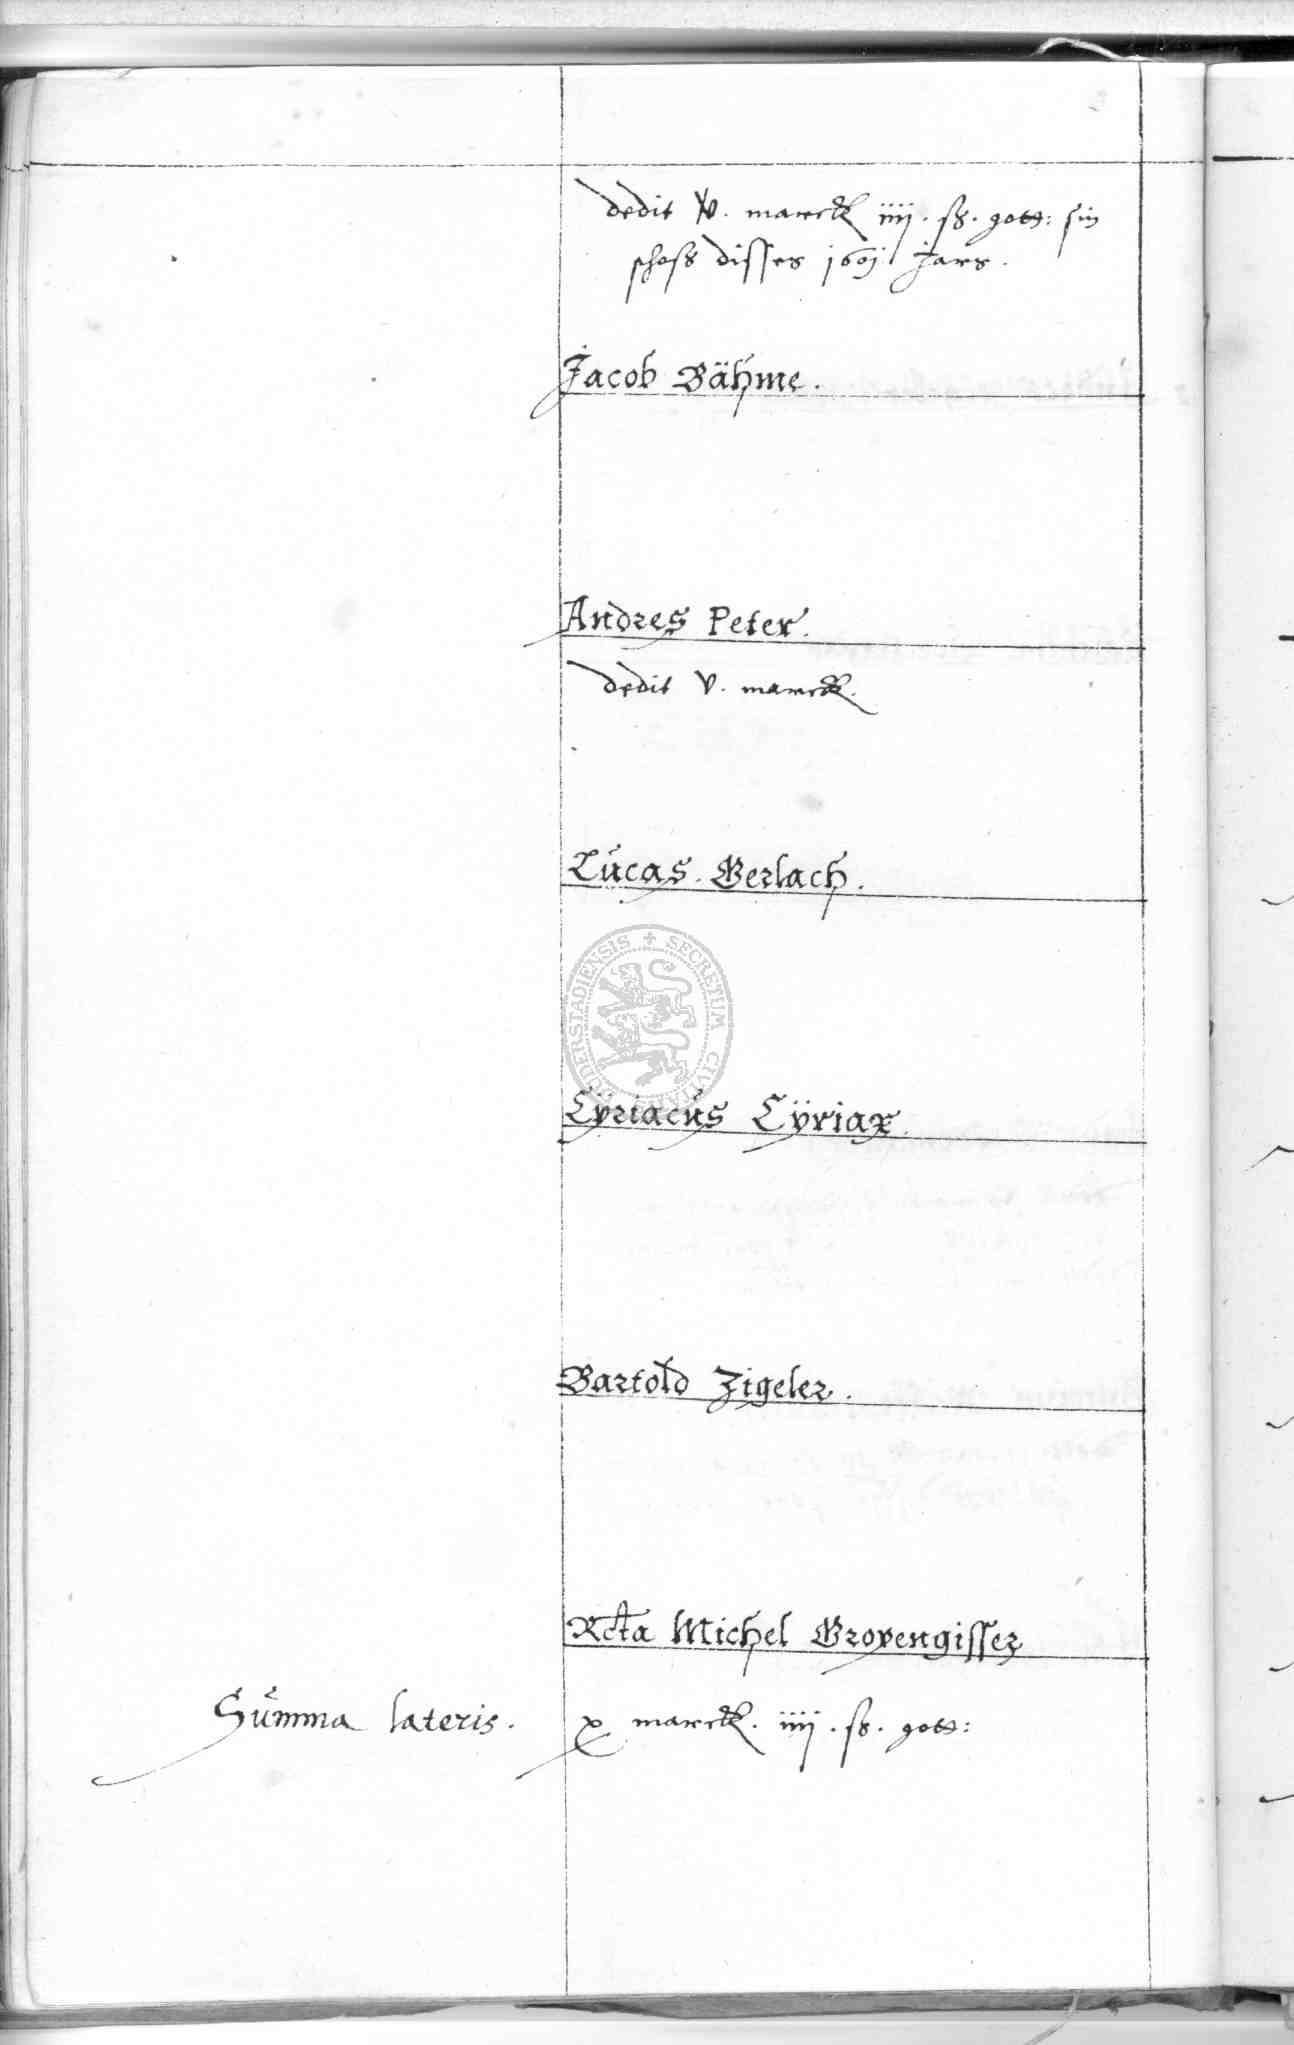 dedit v. marck iiij. ß. gott: sin
schoss disses 1601 Jars.
Jacob Bähme.
Andres Peter.
dedit v. marck.
Lucas Gerlach.
SECRETUM CIVITATIS DUDERSTADIENSIS
Cÿriacus Cÿriax.
Bartold Zigeler.
Rcta Michel Gropengisser
Summa lateris. x marck. iiij. ß. gott: